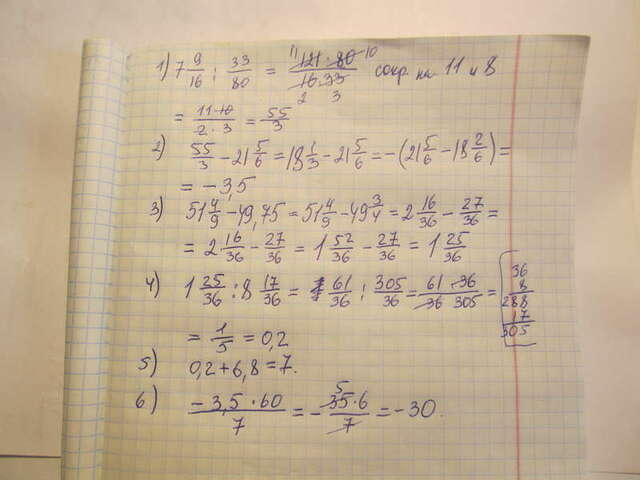 1) 7 9/16 : 33/80 = 121·80/16·33 11 10 2 3 сокр на 11 и 8
= 11·10/2·3 = 55/3
2) 55/3 - 21 5/6 = 18 1/3 - 21 5/6 = -(21 5/6 - 18 2/6) =
= -3,5
3) 51 4/9 - 49,75 = 51 4/9 - 49 3/4 = 2 16/36 - 27/36 =
= 2 16/36 - 27/36 = 1 52/36 - 27/36 = 1 25/36
4) 1 25/36 : 8 17/36 = 61/36 : 305/36 = 61·36/36·305 =
36
8
288
17
305
= 1/5 = 0,2
5) 0,2+6,8=7.
6) -3,5·60/7 = -35·6/7 5 = -30.